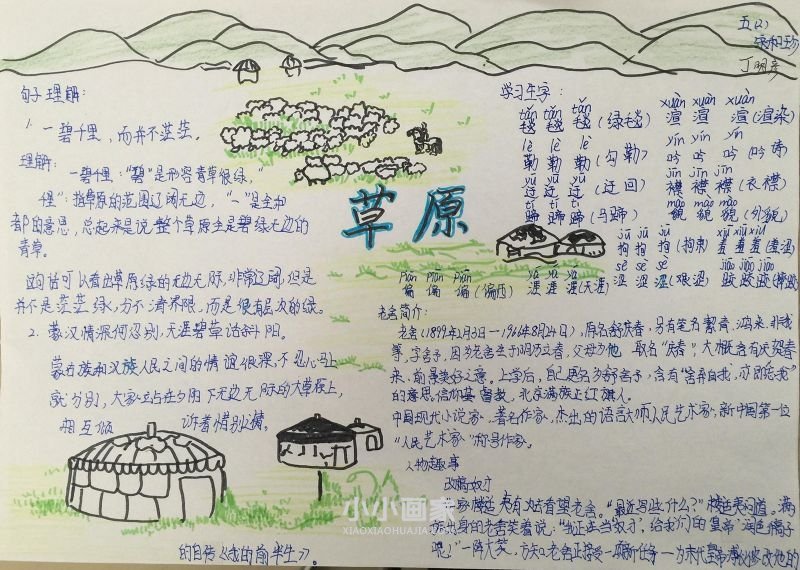 五(2)
句子理解:
1. 一碧千里,而并不茫茫。
理解:
一碧千里:“碧”是形容青草很绿,“
千里”:指草原的范围辽阔无边,“一”是全和
都的意思,总起来是说整个草原全是碧绿无边的
青草。
这句话可以看出草原绿的无边无际,非常辽阔,但是
并不是茫茫绿,分不清界限,而是很有层次的绿。
2. 蒙汉情深何忍别,天涯碧草话斜阳。
蒙古族和汉族人民之间的情谊很深,不忍心马上
就分别,大家站在夕阳下无边无际的大草原上,
相互倾 诉着惜别之情。
草原
学习生字:
tǎn tǎn tǎn xuàn xuàn xuàn
毯 毯 毯 (绿毯) 渲 渲 渲 (渲染)
lè lè lè yín yín yín
勒 勒 勒 (勾勒) 吟 吟 吟 (吟诗)
yū yū yū jīn jīn jīn
迂 迂 迂 (迂回) 襟 襟 襟 (衣襟)
tí tí tí mào mào mào
蹄 蹄 蹄 (马蹄) 貌 貌 貌 (外貌)
jū jū jū xiū xiū xiū
拘 拘 拘 (拘束) 羞 羞 羞 (羞涩)
piān piān piān yá yá yá sè sè sè jiāo jiāo jiāo
偏 偏 偏 涯 涯 涯 (天涯) 涩 涩 涩
老舍简介:
老舍(1899年2月3日—1966年8月24日),原名舒庆春,另有笔名絜青、鸿来、非我
等,字舍予,因为老舍生于阴历立春,父母为他 取名“庆春”,大概含有庆贺春
来、前景美好之意。上学后,自己更名为舒舍予,含有“舍弃自我”,亦即“忘我”
的意思,信仰基督教,北京满族正红旗人。
中国现代小说家、著名作家、杰出的语言大师、人民艺术家,新中国第一位
“人民艺术家”称号作家。
人物趣事
改稿奴才
楼适夷有次去看望老舍,“最近写些什么?”楼适夷问道。满
族出身的老舍笑着说:“我正在当奴才,给我们的皇帝润色稿子
呢!”一阵大笑,方知老舍正接受一项新任务—为末代皇帝溥仪修改他的
的自传《我的前半生》。
小小画家